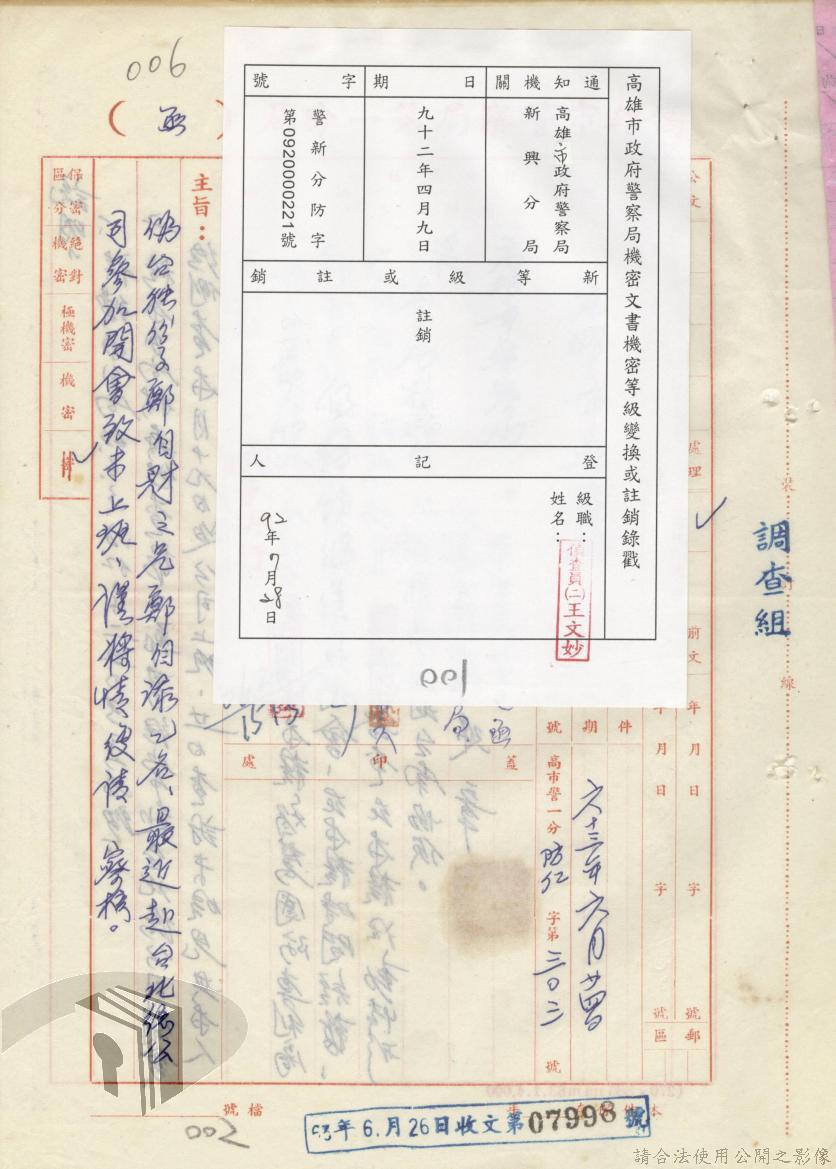 006
（函）
高雄市政府警察局機密文書機密等級變換或註銷錄戳
通知機關
高雄市政府警察局
新興分局
日期
九十二年四月九日
字號
警新分防字
第0920000221號
新等級或註銷
註銷
登記人
級職：
姓名：
偵查員(二)王文妙
92年7月28日
001
調查組
裝訂線
公文
處理
前文
年月日
字
號
郵
年月日
字
號
區
件
期
號
六十三年六月廿四日
高市警一分防仁字第三〇三號
蓋印處
主旨：
偽台獨份子鄭自財之兄鄭自添乙名、最近赴台北總公
司參加開會致未上班、謹將情復請 察核。
保密區分
絕對機密
極機密
機密
檔號
002
63年6.月26日收文第07998號
請合法使用公開之影像